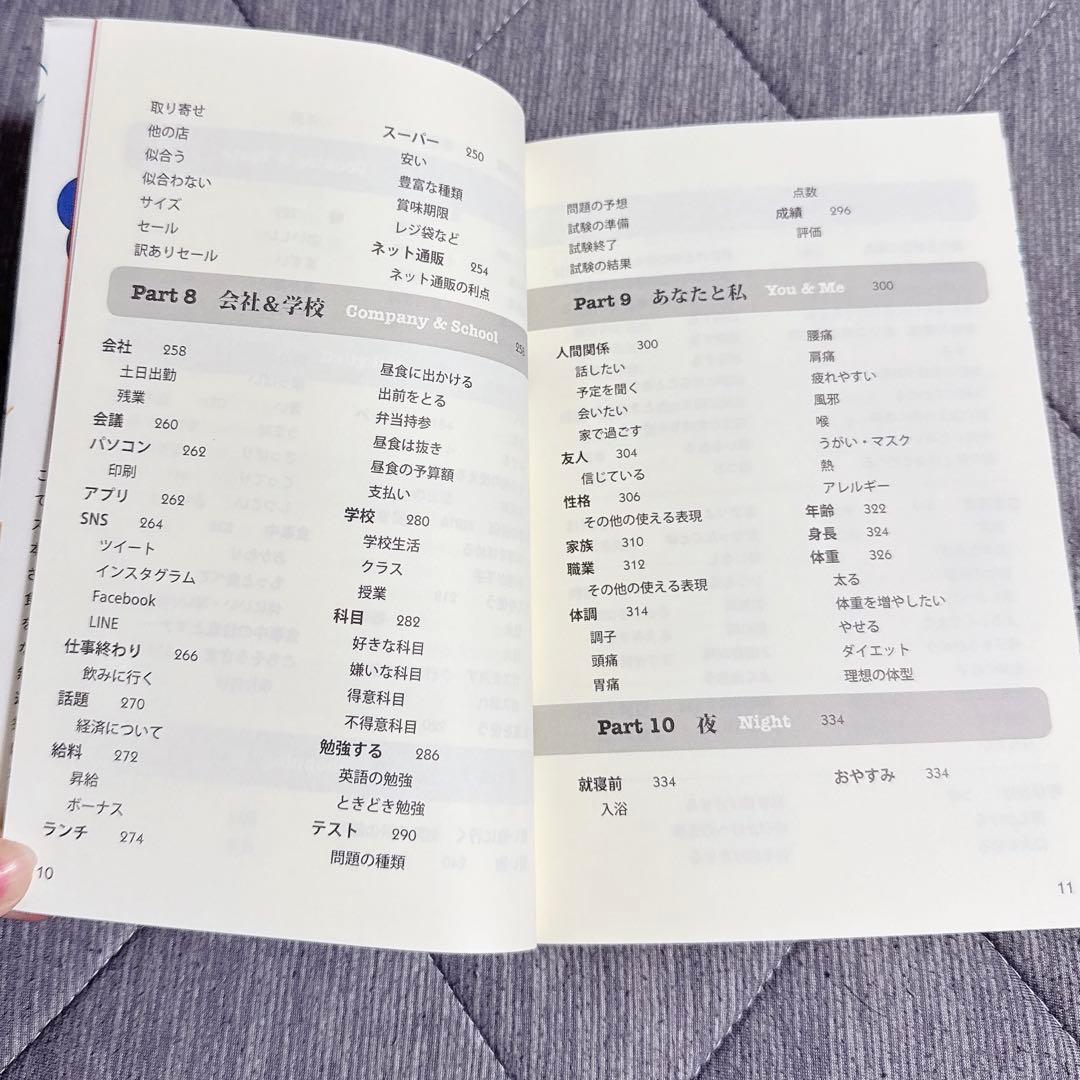 取り寄せ
他の店
似合う
似合わない
サイズ
セール
訳ありセール
スーパー 250
安い
豊富な種類
賞味期限
レジ袋など
ネット通販 254
ネット通販の利点
Part 8 会社&学校 Company & School 258
会社 258
土日出勤
残業
会議 260
パソコン 262
印刷
アプリ 262
SNS 264
ツイート
インスタグラム
Facebook
LINE
仕事終わり 266
飲みに行く
話題 270
経済について
給料 272
昇給
ボーナス
ランチ 274
昼食に出かける
出前をとる
弁当持参
昼食は抜き
昼食の予算額
支払い
学校 280
学校生活
クラス
授業
科目 282
好きな科目
嫌いな科目
得意科目
不得意科目
勉強する 286
英語の勉強
ときどき勉強
テスト 290
問題の種類
10
問題の予想
試験の準備
試験終了
試験の結果
点数
成績 296
評価
Part 9 あなたと私 You & Me 300
人間関係 300
話したい
予定を聞く
会いたい
家で過ごす
友人 304
信じている
性格 306
その他の使える表現
家族 310
職業 312
その他の使える表現
体調 314
調子
頭痛
胃痛
腰痛
肩痛
疲れやすい
風邪
喉
うがい・マスク
熱
アレルギー
年齢 322
身長 324
体重 326
太る
体重を増やしたい
やせる
ダイエット
理想の体型
Part 10 夜 Night 334
就寝前 334
入浴
おやすみ 334
11